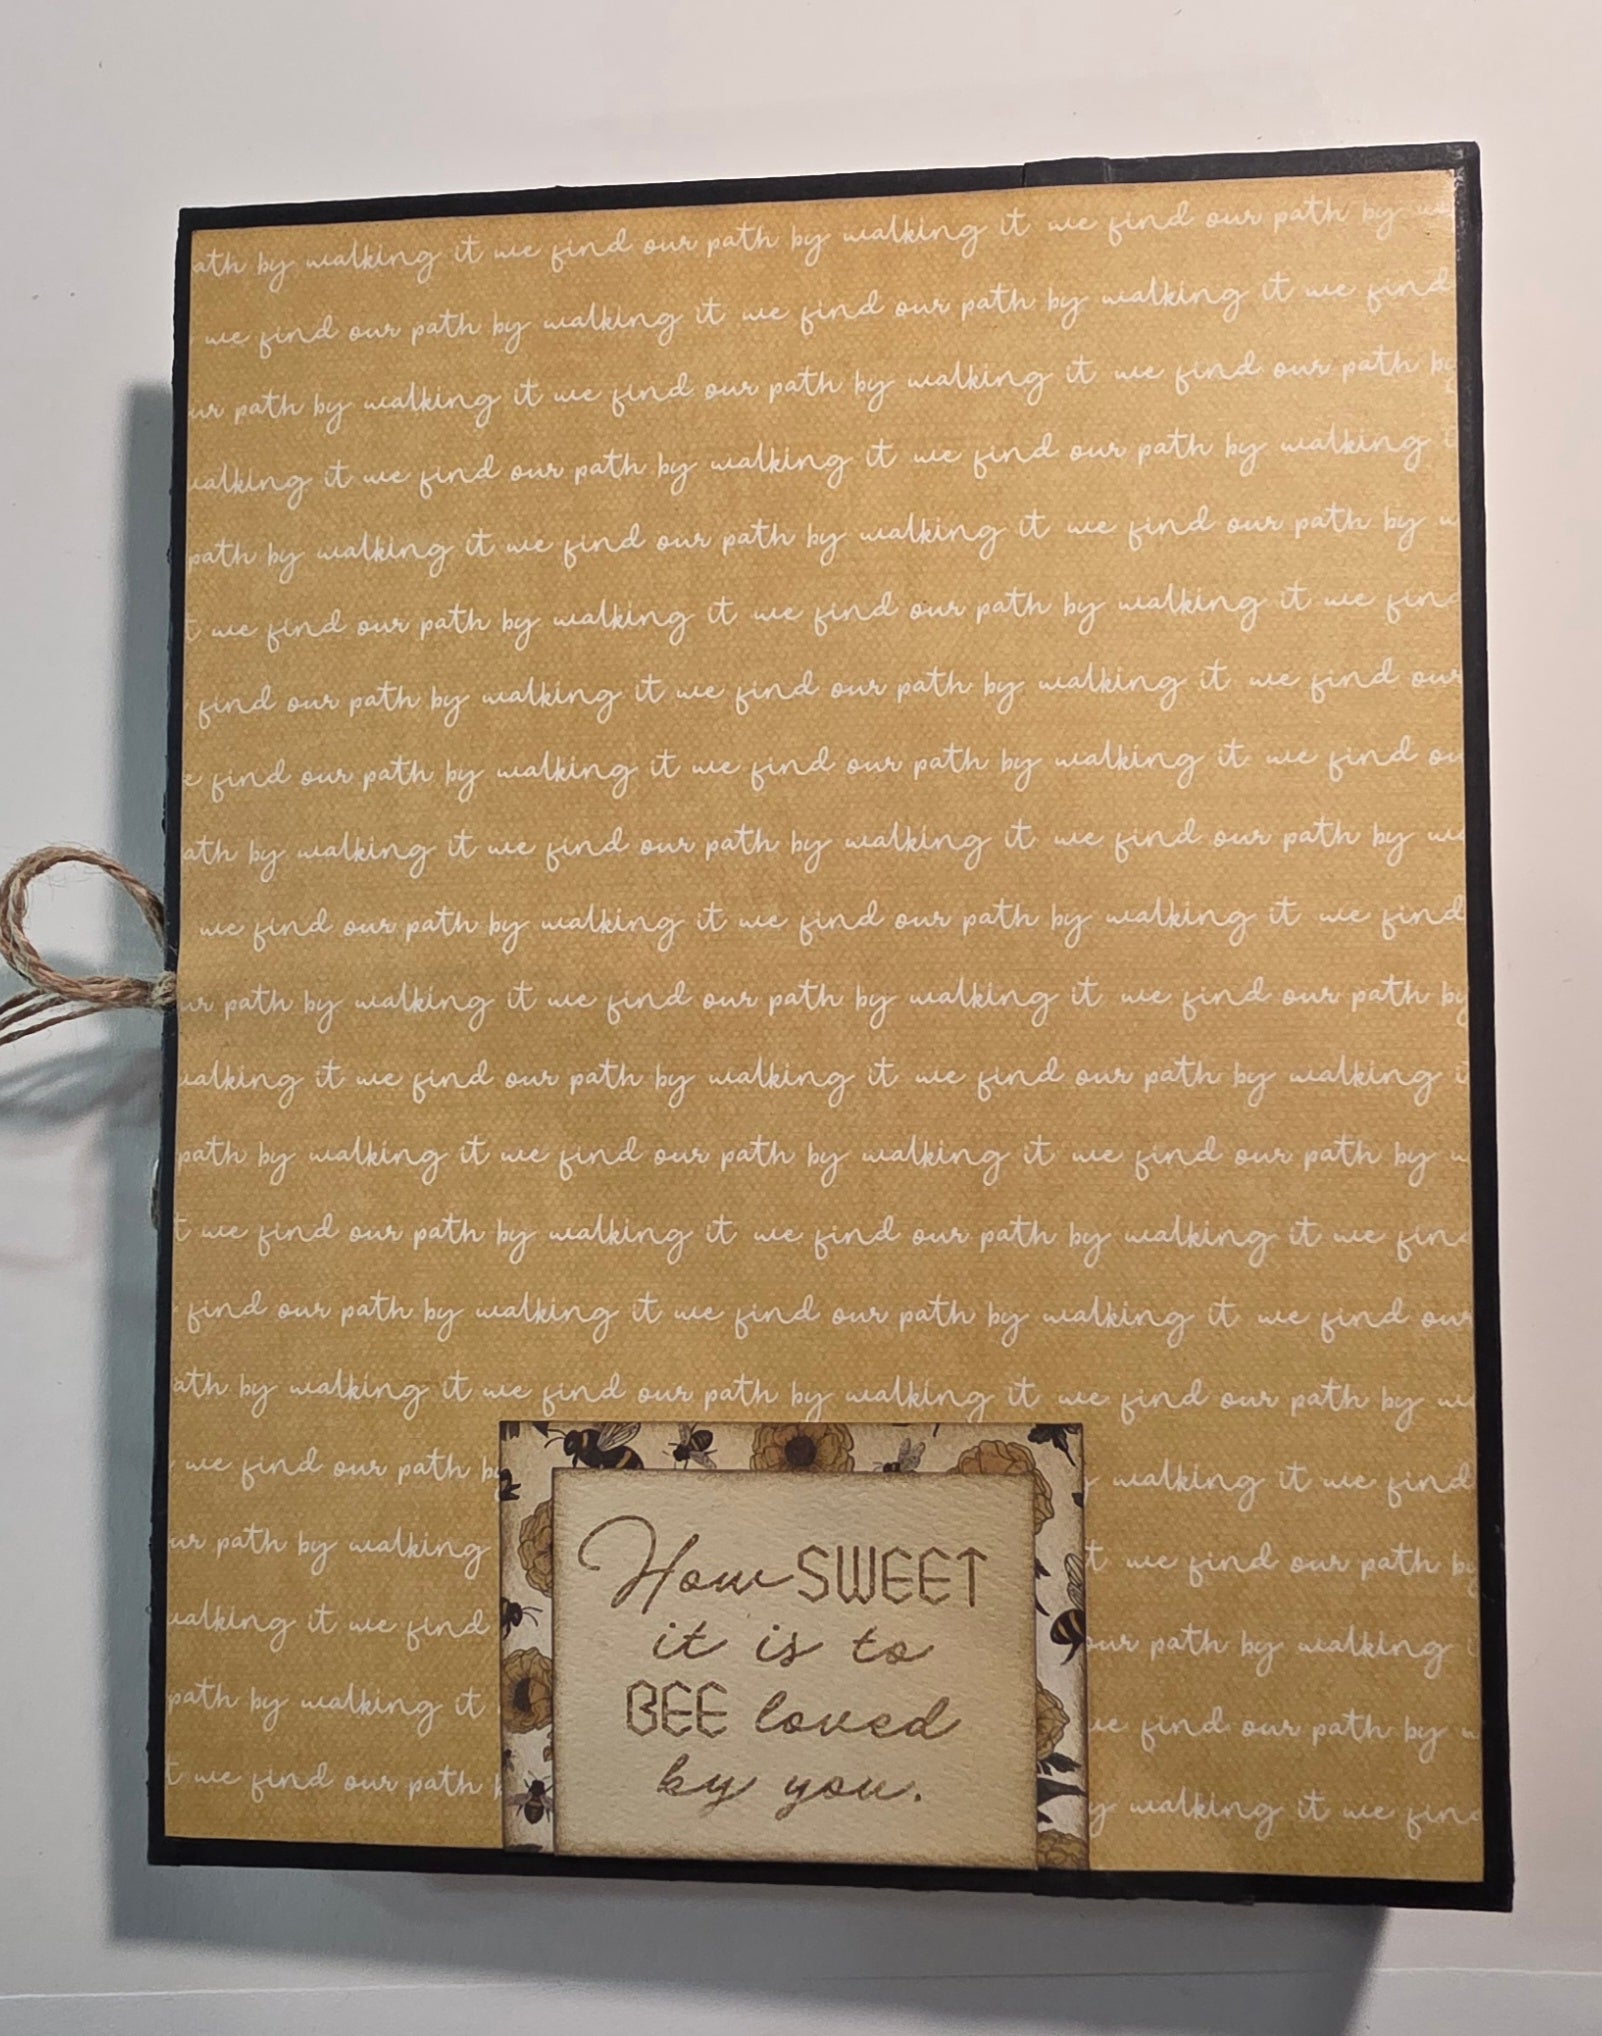 ath by walking it we find our path by walking it we find our path by
we find our path by walking it we find our path by walking it we find
ur path by walking it we find our path by walking it we find our path by
walking it we find our path by walking it we find our path by walking
path by walking it we find our path by walking it we find our path by
we find our path by walking it we find our path by walking it we find
find our path by walking it we find our path by walking it we find our
find our path by walking it we find our path by walking it we find ou
ath by walking it we find our path by walking it we find our path by
we find our path by walking it we find our path by walking it we find
ur path by walking it we find our path by walking it we find our path by
walking it we find our path by walking it we find our path by walking
path by walking it we find our path by walking it we find our path by
t we find our path by walking it we find our path by walking it we find
find our path by walking it we find our path by walking it we find our
ath by walking it we find our path by walking it we find our path by
we find our path by walking it we find
our path by walking t we find our path by
walking it we find our path by walking
path by walking it we find our path by
t we find our path by walking it we find
How SWEET
it is to
BEE loved
by you.